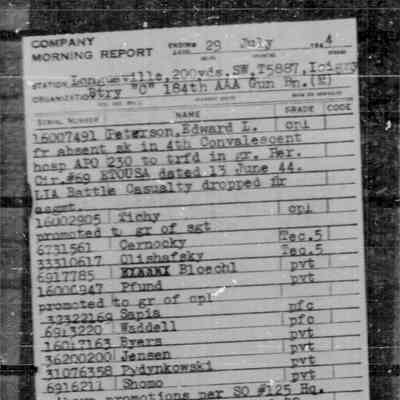 COMPANY
MORNING REPORT ENDING 29 July 1944
STATION Longueville, 200yds. SW, T5887,
ORGANIZATION Btry "C" 184th AAA Gun Bn. (M)
SERIAL NUMBER NAME GRADE CODE
16007491 Peterson, Edward L. cpl
fr absent sk in 4th Convalescent
hosp APO 230 to trfd in gr. Her.
Cir.#69 ETOUSA dated 13 June 44.
LIA Battle Casualty dropped fr
asgmt.
16002905 Tichy cpl
promoted to gr of sgt
6731561 Cernocky Tec.5
33310617 Olishafsky Tec.5
6917785 Bloechl pvt
16000947 Pfund pvt
promoted to gr of cpl
32322169 Sapia pfc
6913220 Waddell pfc
16017163 Byers pvt
36200200 Jensen pvt
31076358 Pydynkowski pvt
6916211 Shomo pvt
promotions per SO #125 Hq.